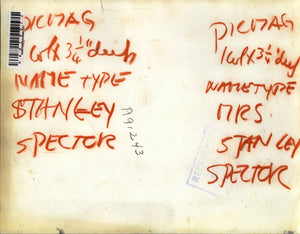 PICMAG
1 col x 3 1/4" deep
NAME TYPE
STANLEY
SPECTOR
A91243
PICMAG
1 col x 3 1/4" deep
NAME TYPE
MRS
STANLEY
SPECTOR